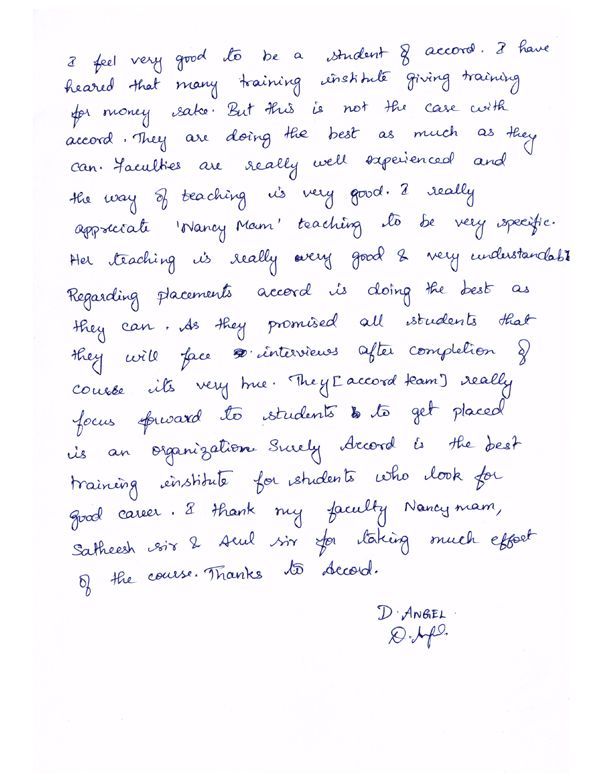 I feel very good to be a student of accord. I have
heared that many training institute giving training
for money sake. But this is not the case with
accord. They are doing the best as much as they
can. Faculties are really well experienced and
the way of teaching is very good. I really
appriciate 'Nancy Mam' teaching to be very specific.
Her teaching is really very good & very understandabl
Regarding placements accord is doing the best as
they can. As they promised all students that
they will face interviews after completion of
course its very true. They [accord team] really
focus forward to students to get placed
is an organization. Surely Accord is the best
training institute for students who look for
good career. I thank my faculty Nancy mam,
Satheesh sir & sir for taking much effort
of the course. Thanks to Accord.
D. ANGEL.